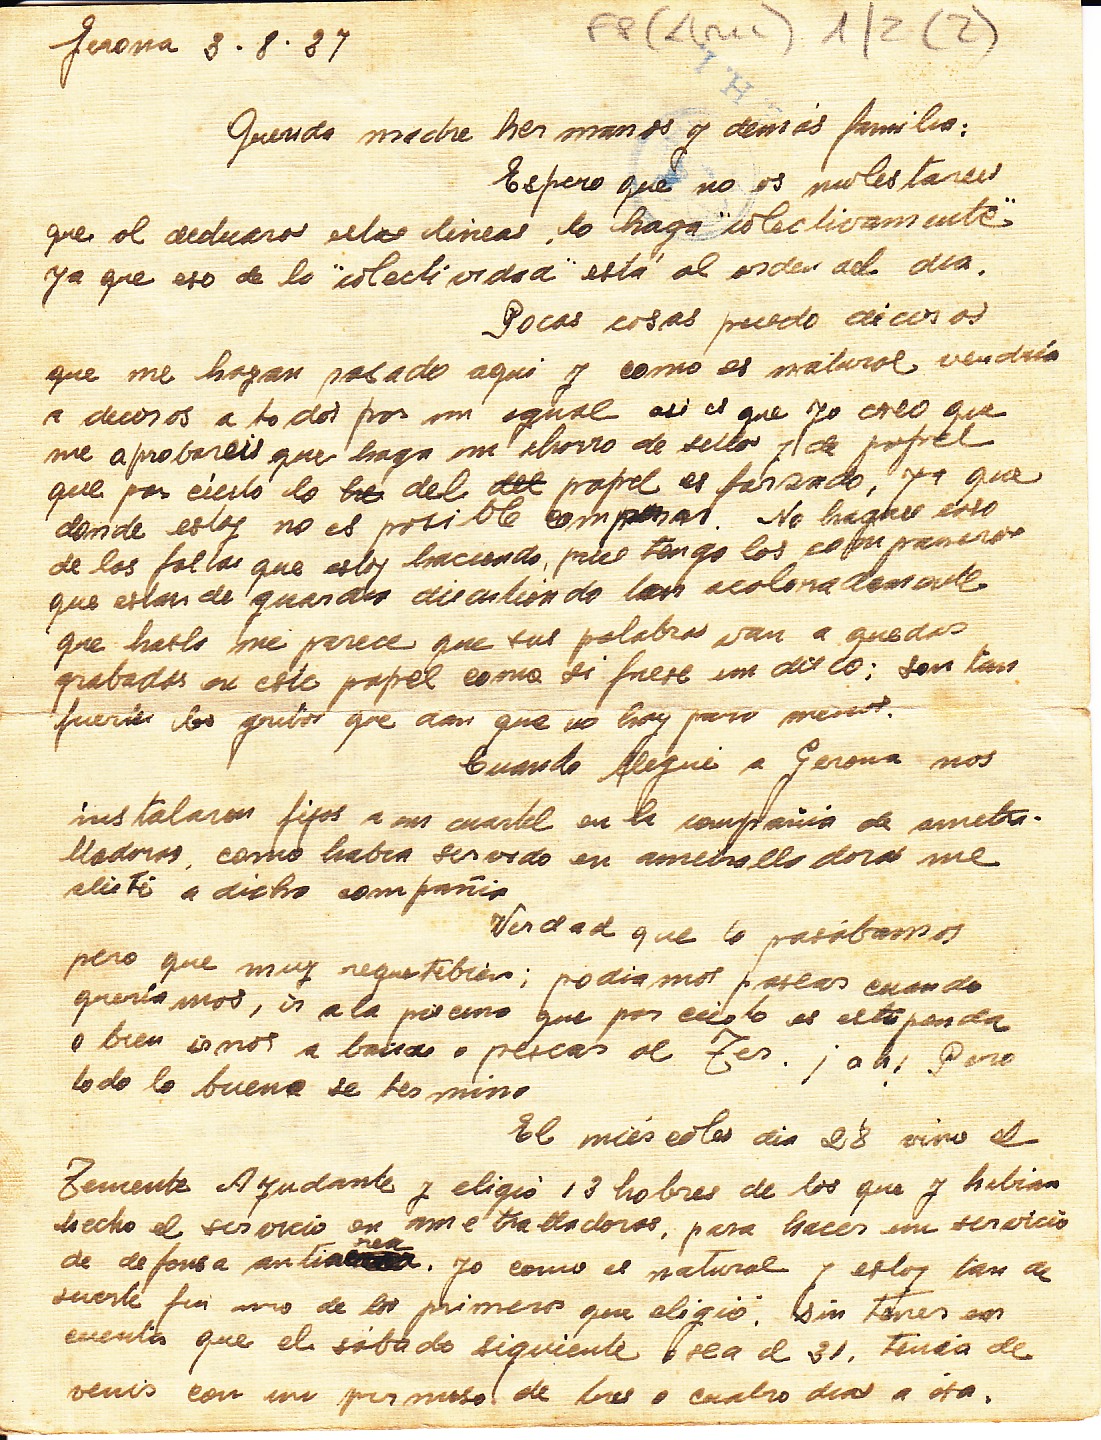 Gerona 3-8-37
F8 (Arm) 1/2 (2)
Querida madre hermanos y demás familia:
Espero que no os molestareis
que al dedicaros estas lineas, lo haga "colectivamente"
ya que eso de la "colectividad" está al orden del dia.
Pocas cosas puedo deciros
que me hayan pasado aqui y como es natural vendria
a deciros a todos por un igual asi es que yo creo que
me aprobareis que haga un ahorro de sellos y de papel
que por cierto lo del papel es forzado, ya que
donde estoy no es posible comprar. No hagais caso
de las faltas que estoy haciendo, pues tengo los compañeros
que estan de guardia discutiendo tan acaloradamente
que hasta me parece que sus palabras van a quedar
grabadas en este papel como si fuese un disco; son tan
fuertes los gritos que dan que no hay para menos.
Cuando llegué a Gerona nos
instalaron fijos a un cuartel en la compañia de ametra-
lladoras, como habia servido en ametralladoras me
alisté a dicha compañia
Verdad que lo pasábamos
pero que muy requetebien; podiamos pasear cuando
queriamos, ir a la piscina que por cierto es estupenda
o bien irnos a bañar o pescar al Ter. ¡ah! Pero
todo lo bueno se termina
El miércoles dia 28 vino el
Teniente Ayudante y eligió 13 hobres de los que y habian
hecho el servicio en ametralladoras, para hacer un servicio
de defensa antiaerea. Yo como es natural y estoy tan de
suerte fui uno de los primeros que eligió. Sin tener en
cuenta que el sábado siguiente o sea el 31, tenia de
venir con un permiso de tres o cuatro dias a esa.